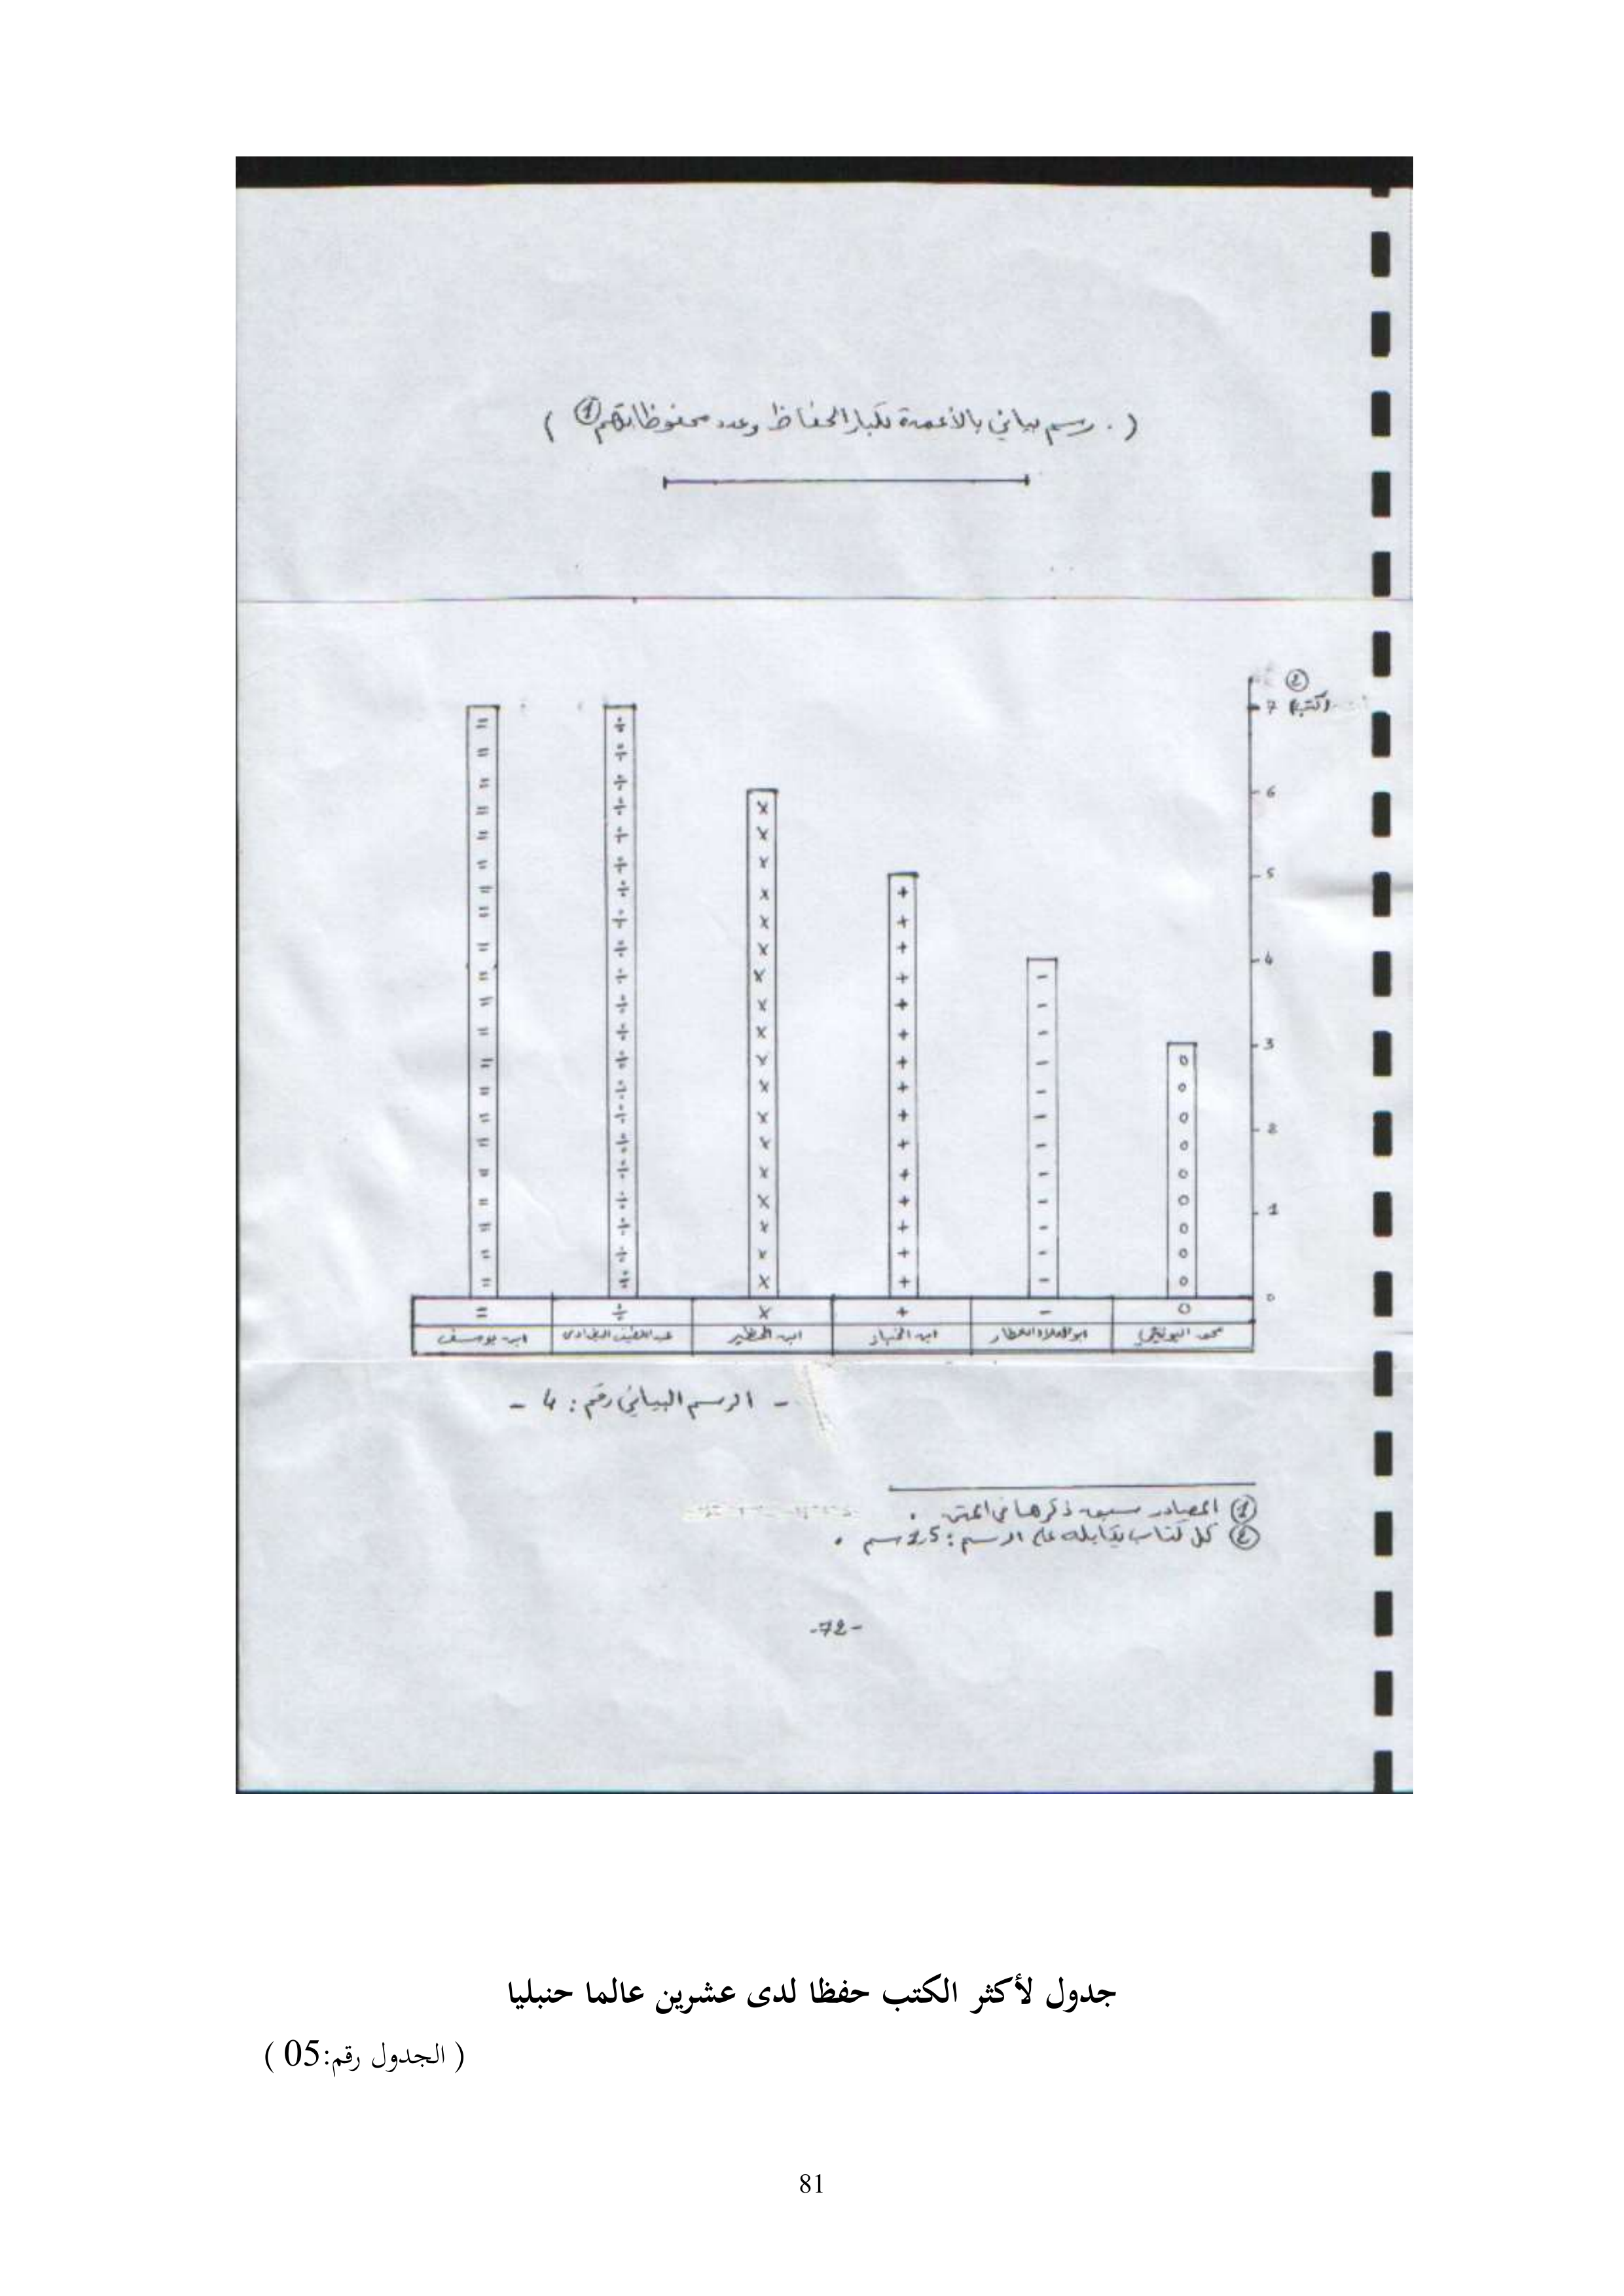 ( . رسم بياني بالأعمدة لكبار الحفاظ وعدد محفوظاتهم ① )
②
7 (كتب)
6
5
4
3
2
1
0
○
-
+
×
÷
=
محمد اليونيني
ابو العلاء العطار
ابن الخباز
ابن الحظير
عبد اللطيف البغدادي
ابن يوسف
- الرسم البياني رقم : 4 -
① المصادر سبق ذكرها في المتن .
② كل كتاب يقابله على الرسم : 1,5 سم .
-72-
جدول لأكثر الكتب حفظا لدى عشرين عالما حنبليا
( الجدول رقم:05 )
81